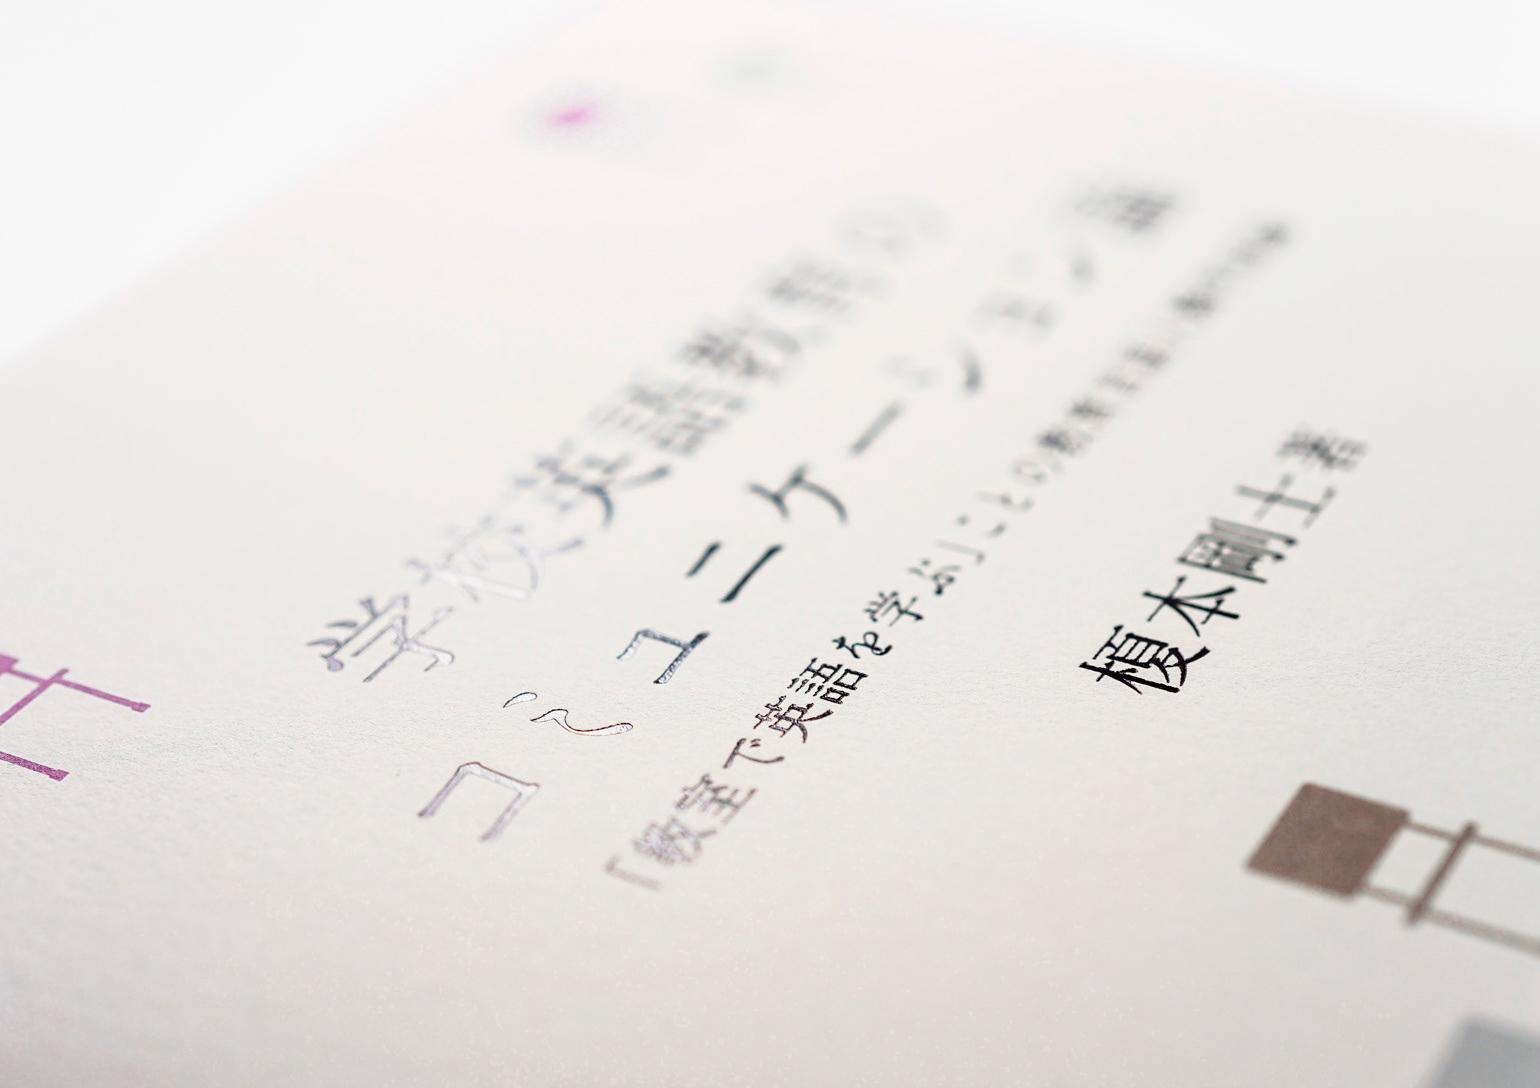 学校英語教育の
コミュニケーション論
「教室で英語を学ぶ」ことの教育言語
榎本剛士著